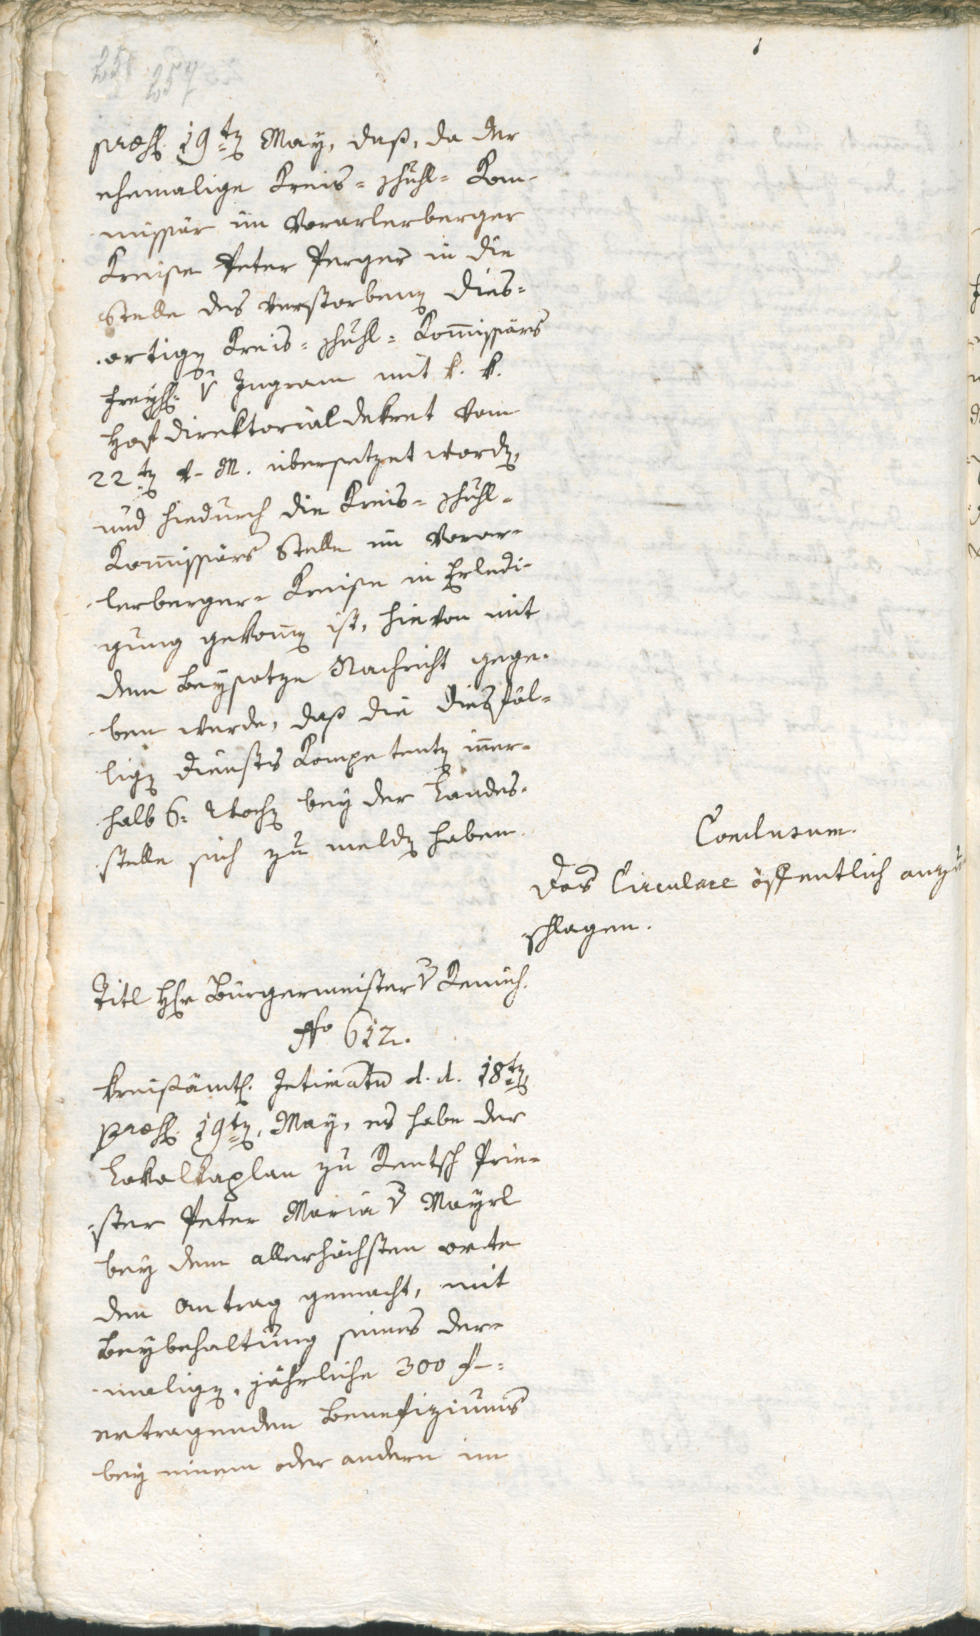 257
præs. 19ten May, daß, da der
ehemalige Kreis=Schuhl=Kom-
missär im Vorarlerberger
Kreise Peter Perger in die
Stelle des verstorbenen dies-
ortigen Kreis=Schuhl=Kommissärs
Freyh. v Ingram mit k. k.
Hofdirektorialdekret vom
22ten v. M. übersetzet worden,
und hiedurch die Kreis=Schuhl=
Kommissärs Stelle im Vorar-
lerberger= Kreise in Erledi-
gung gekommen ist, hievon mit
dem Beysatze Nachricht gege-
ben werde, daß die diesfäl-
ligen Dienstes Kompetenten inner-
halb 6= Wochen bey der Landes-
stelle sich zu melden haben.
Conclusum.
Das Circulare öffentlich anzu
schlagen.
Titl Hr Bürgermeister v Remich.
No 612.
Kreisämtl. Intimatum d. d. 18ten
præs. 19ten May, es habe der
Lokalkaplan zu Rentsch Prie-
ster Peter Maria v Mayrl
bey dem allerhöchsten orte
den Antrag gemacht, mit
Beybehaltung seines der-
maligen, jährliche 300 f.
ertragenden Benefiziums
bey einem oder andern im